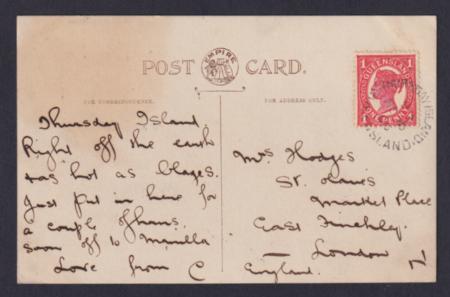 EMPIRE
POST CARD.
FOR CORRESPONDENCE.
FOR ADDRESS ONLY.
1 QUEENSLAND 1
ONE PENNY
ISLAND. Q
Thursday Island
Right off the earth
was hot as blazes.
Just put in here for
a couple of hours.
soon off to Manilla
Love from C
Mrs Hodges
St.
Market Place
East Finchley
London N
England.